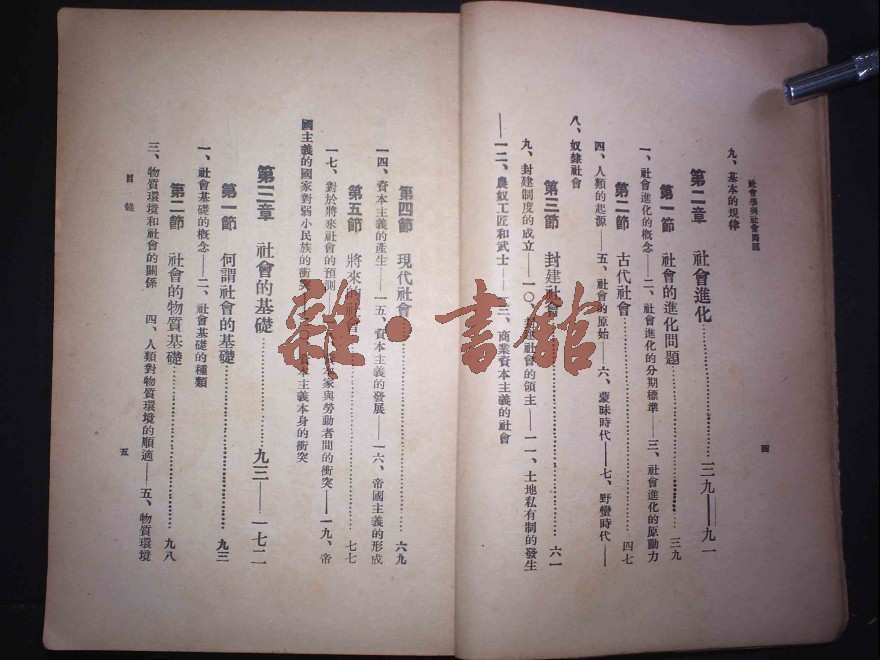 社會學與社會問題
九、基本的規律
第二章 社會進化………三九——九一
第一節 社會的進化問題………三九
一、社會進化的概念——二、社會進化的分期標準——三、社會進化的原動力
第二節 古代社會………四七
四、人類的起源——五、社會的原始——六、蒙昧時代——七、野蠻時代——
八、奴隸社會
第三節 封建社會………六一
九、封建制度的成立——一〇、封建社會的領主——一一、土地私有制的發生
——一二、農奴工匠和武士——一三、商業資本主義的社會
四
第四節 現代社會………六九
一四、資本主義的產生——一五、資本主義的發展——一六、帝國主義的形成
第五節 將來的社會………七七
一七、對於將來社會的預測——家與勞動者間的衝突——一九、帝
國主義的國家對弱小民族的衝突——二〇、資本主義本身的衝突
第三章 社會的基礎………九三——一七二
第一節 何謂社會的基礎………九三
一、社會基礎的概念——二、社會基礎的種類
第二節 社會的物質基礎………九八
三、物質環境和社會的關係 四、人類對物質環境的順適——五、物質環境
目錄
五
雜·書館